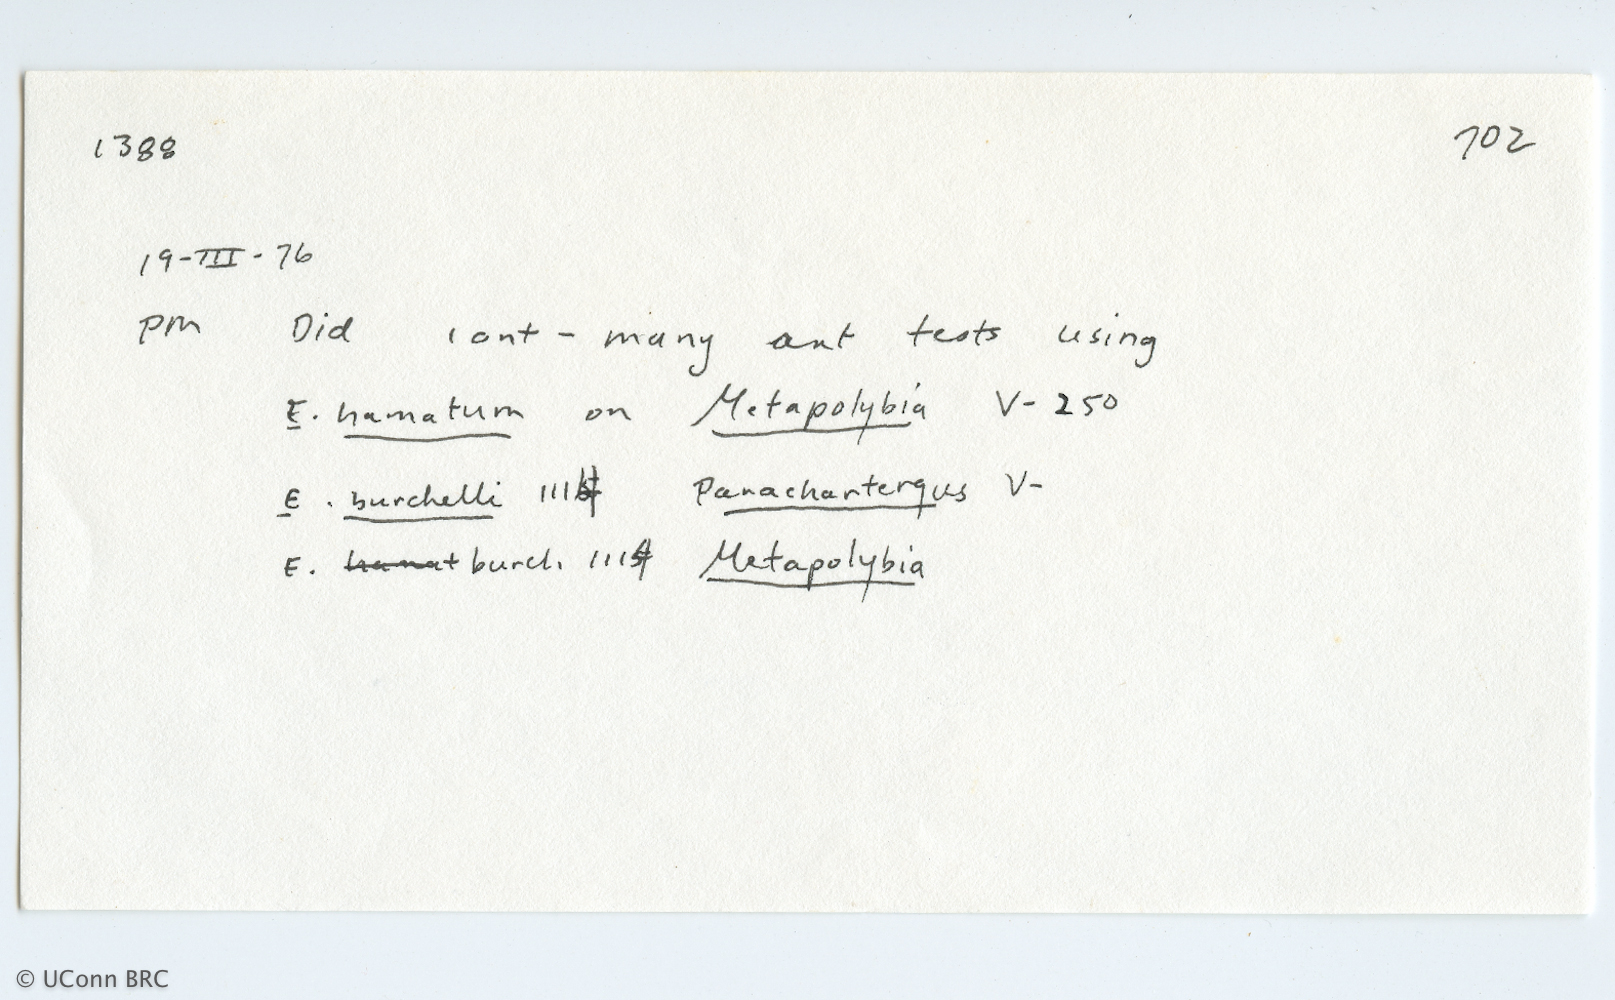 1388 702
19-III-76
PM Did 1 ant - many ant tests using
E. hamatum on Metapolybia V-250
E. burchelli 111 Parachartergus V-
E. hamat burch. 111 Metapolybia
© UConn BRC